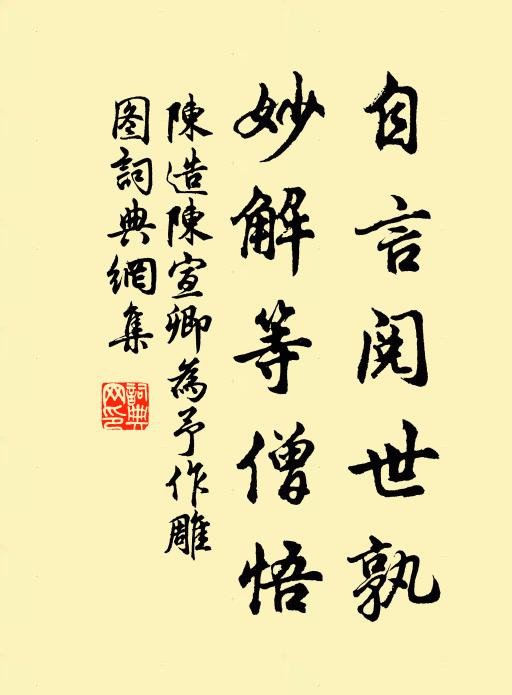 自言阅世孰
妙解等僧悟
陳造陳宣卿為予作雕
图詞典網集
詞典
网印